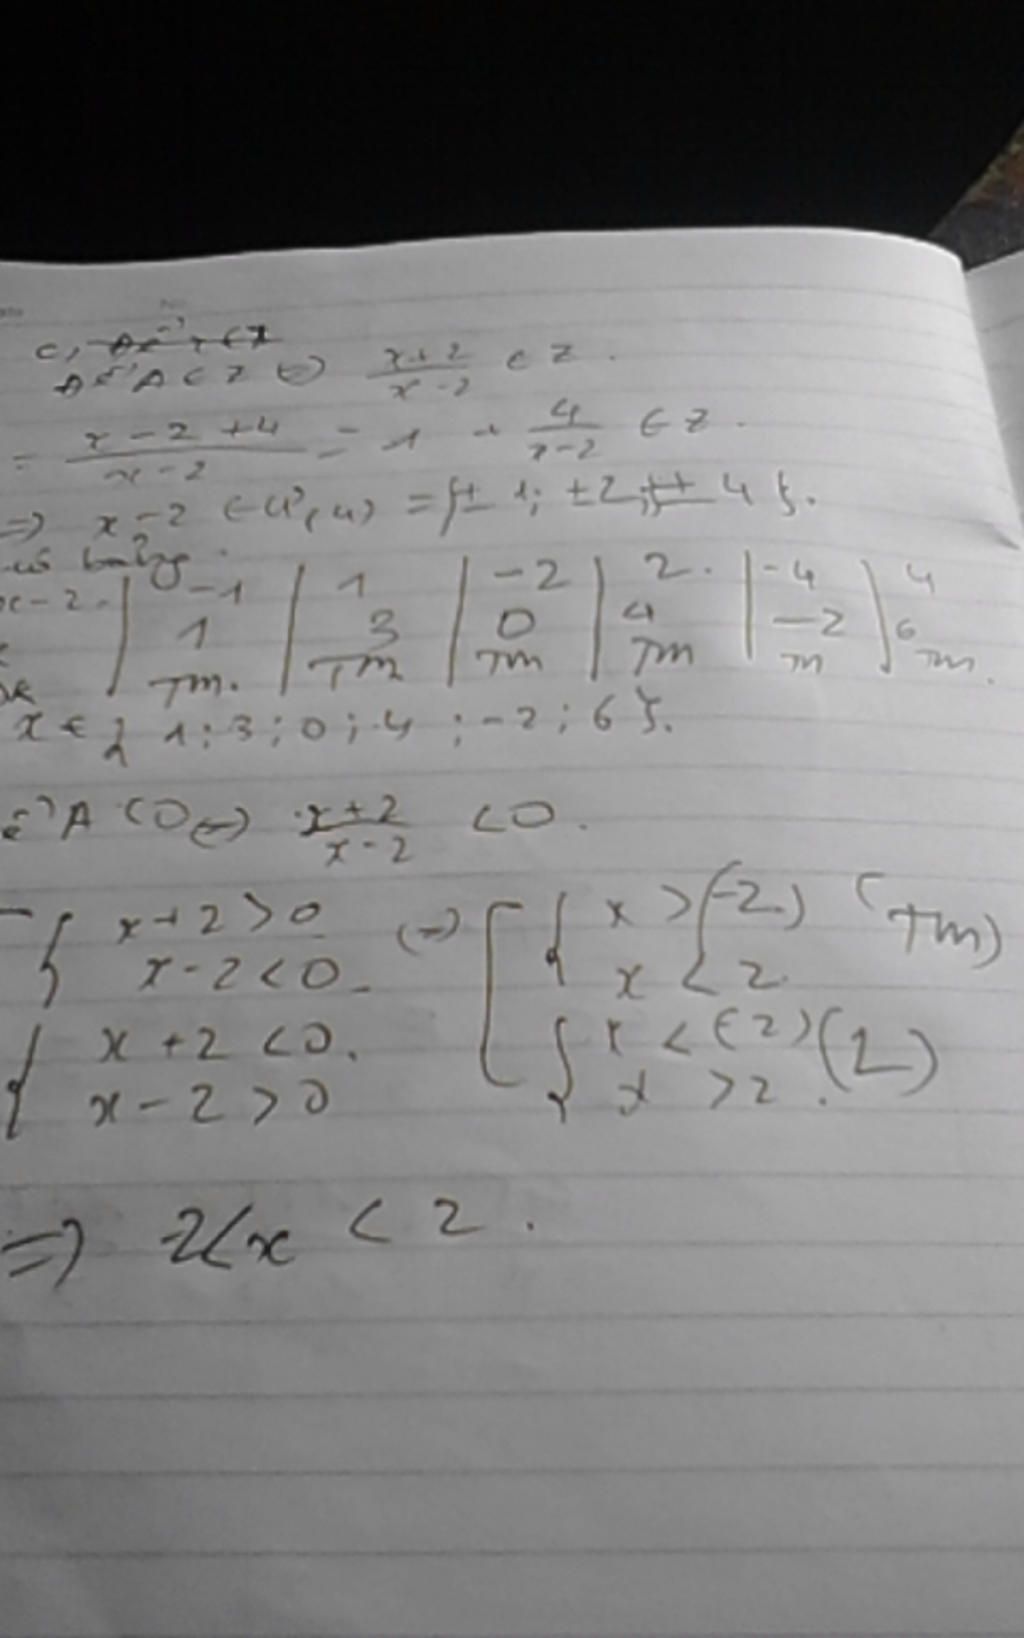 c,
A ∈ Z ⇔ x+2/x-2 ∈ Z.
= x-2+4/x-2 = 1 + 4/x-2 ∈ Z.
=> x-2 ∈ Ư(4) = {± 1; ±2; ± 4}.
bảng.
x-2 | -1 | 1 | -2 | 2 | -4 | 4
1 | 3 | 0 | 4 | -2 | 6
TM | TM | TM | TM | TM | TM
x ∈ { 1; 3; 0; 4; -2; 6 }.
A < 0 ⇔ x+2/x-2 < 0.
{ x+2 > 0 ⇔ [ { x > (-2) (TM)
x-2 < 0 x < 2
{ x+2 < 0. { x < (-2) (L)
x-2 > 0 x > 2.
=> -2 < x < 2.